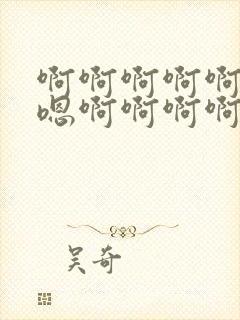 啊啊啊啊啊
嗯啊啊啊啊
吴奇